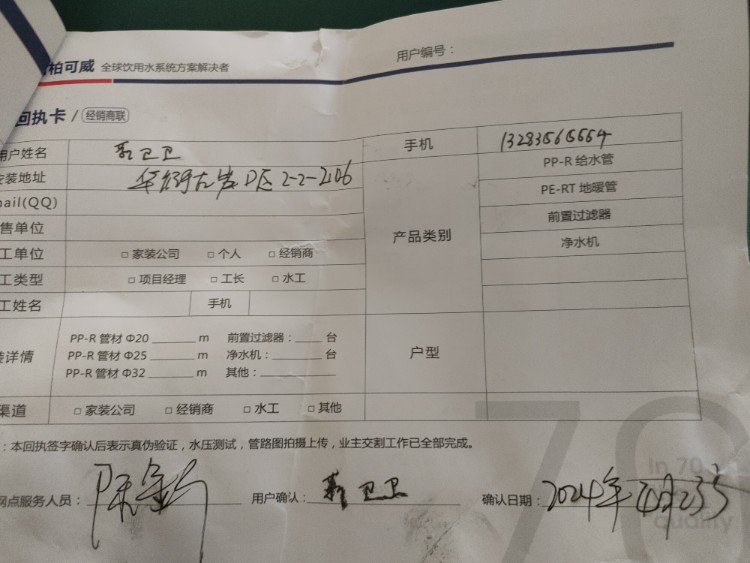 柏可威 全球饮用水系统方案解决者
用户编号：
回执卡 / 经销商联
用户姓名 卫卫 手机
安装地址 2-2-2106
mail(QQ)
售单位
工单位 □ 家装公司 □ 个人 □ 经销商
工类型 □ 项目经理 □ 工长 □ 水工
工姓名 手机
产品类别
PP-R 给水管
PE-RT 地暖管
前置过滤器
净水机
详情
PP-R 管材 Φ20 ______ m 前置过滤器：____ 台
PP-R 管材 Φ25 ______ m 净水机：____ 台
PP-R 管材 Φ32 ______ m 其他：______
户型
渠道 □ 家装公司 □ 经销商 □ 水工 □ 其他
：本回执签字确认后表示真伪验证，水压测试，管路图拍摄上传，业主交割工作已全部完成。
网点服务人员： 用户确认： 卫卫 确认日期：2024年
70
in 70
quality